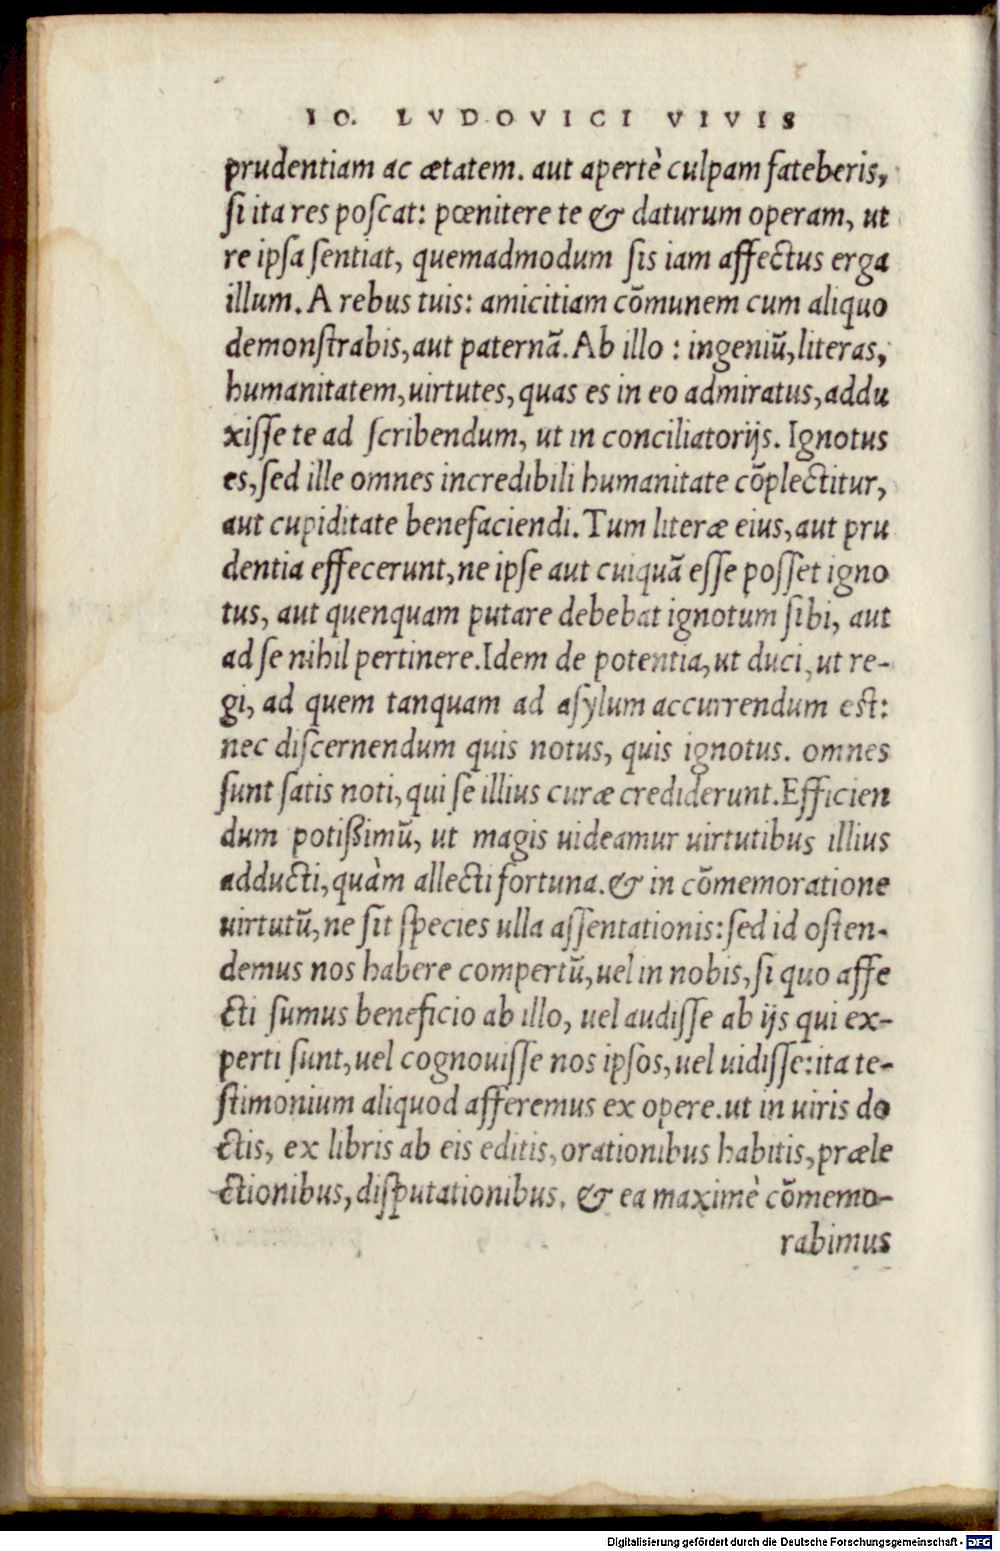 IO. LVDOVICI VIVIS
prudentiam ac ætatem. aut apertè culpam fateberis,
ſi ita res poſcat: pœnitere te & daturum operam, ut
re ipſa ſentiat, quemadmodum ſis iam affectus erga
illum. A rebus tuis: amicitiam cōmunem cum aliquo
demonſtrabis, aut paternã. Ab illo : ingeniũ, literas,
humanitatem, uirtutes, quas es in eo admiratus, addu
xiſſe te ad ſcribendum, ut in conciliatorijs. Ignotus
es, ſed ille omnes incredibili humanitate cōplectitur,
aut cupiditate benefaciendi. Tum literæ eius, aut pru
dentia effecerunt, ne ipſe aut cuiquã eſſe poſſet igno
tus, aut quenquam putare debebat ignotum ſibi, aut
ad ſe nihil pertinere. Idem de potentia, ut duci, ut re-
gi, ad quem tanquam ad aſylum accurrendum eſt:
nec diſcernendum quis notus, quis ignotus. omnes
ſunt ſatis noti, qui ſe illius curæ crediderunt. Efficien
dum potiſsimũ, ut magis uideamur uirtutibus illius
adducti, quàm allecti fortuna. & in cōmemoratione
uirtutũ, ne ſit ſpecies ulla aſſentationis: ſed id oſten-
demus nos habere compertũ, uel in nobis, ſi quo affe
cti ſumus beneficio ab illo, uel audiſſe ab ijs qui ex-
perti ſunt, uel cognouiſſe nos ipſos, uel uidiſſe: ita te-
ſtimonium aliquod afferemus ex opere. ut in uiris do
ctis, ex libris ab eis editis, orationibus habitis, præle
ctionibus, diſputationibus. & ea maximè cōmemo-
rabimus
Digitalisierung gefördert durch die Deutsche Forschungsgemeinschaft - DFG